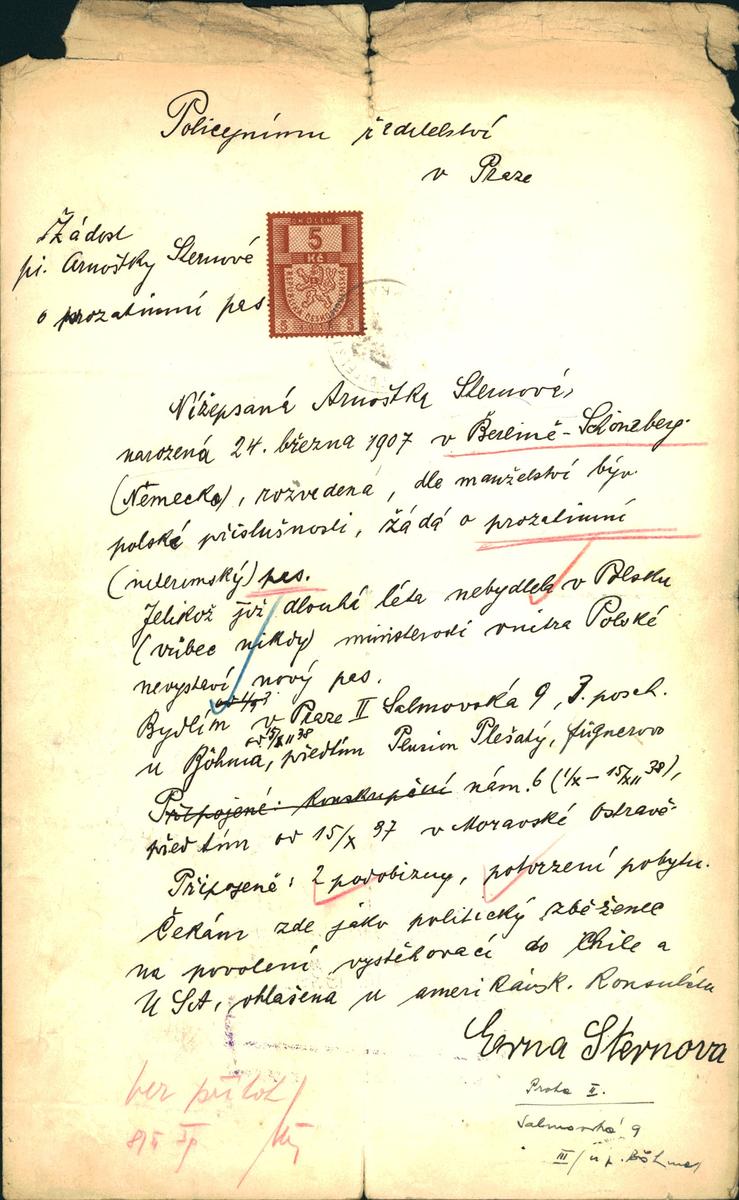 Policejnímu ředitelství
v Praze
Žádost
pí. Arnoštky Sternové
o prozatimní pas.
KOLEK
5
Kč
REPUBLIKA ČESKOSLOVENSKÁ
5 5
Nížepsaná Arnoštka Sternová,
narozená 24. března 1907 v Berlíně-Schöneberg.
(Německo), rozvedená, dle manželství býv.
polské příslušnosti, žádá o prozatimní
(interimský) pas.
Jelikož již dlouhá léta nebydlela v Polsku
(vůbec nikdy) ministerstvo vnitra Polské
nevystaví nový pas.
Bydlím v Praze II Salmovská 9, 3. posch.
od 15/XII 38
u Böhma, předtím Pension Plešatý, Fügnerovo
Připojené: Konskupční nám. 6 (1/X – 15/XII 38),
před tím od 15/X 37 v Moravské Ostravě.
Připojeně: 2 podobizny, potvrzení pobytu.
Čekám zde jako politický zběženec
na povolení vystěhovací do Chile a
USA, ohlašena u amerikánsk. Konsulátu
Erna Sternova
Praha II.
Salmovská 9
III/ u p. Böhma
bez příloh